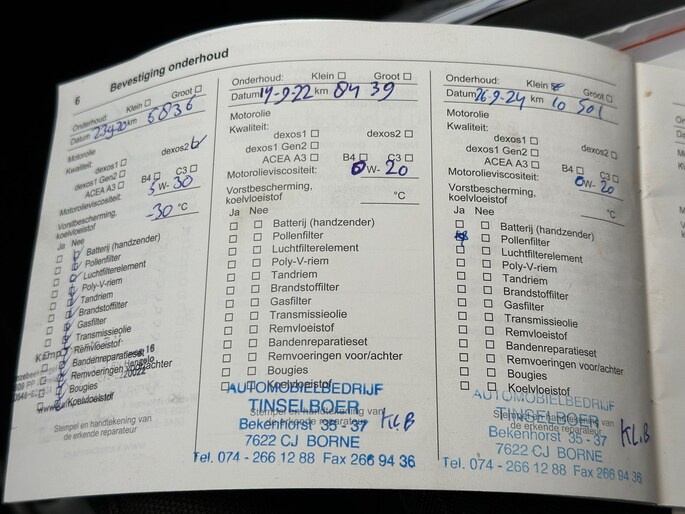 6
Bevestiging onderhoud
Onderhoud: Klein Groot
Datum 23-9-20 km 5836
Motorolie
Kwaliteit: dexos1 dexos2
dexos1 Gen2
ACEA A3 B4 C3
Motorolieviscositeit: 5 W- 30
Vorstbescherming,
koelvloeistof -30 °C
Ja Nee
Batterij (handzender)
Pollenfilter
Luchtfilterelement
Poly-V-riem
Tandriem
Brandstoffilter
Gasfilter
Transmissieolie
Remvloeistof
Bandenreparatieset
Remvoeringen voor/achter
Bougies
Koelvloeistof
Stempel en handtekening van
de erkende reparateur
Onderhoud: Klein Groot
Datum 19-9-22 km 8439
Motorolie
Kwaliteit:
dexos1 dexos2
dexos1 Gen2
ACEA A3 B4 C3
Motorolieviscositeit: 0 W- 20
Vorstbescherming,
koelvloeistof °C
Ja Nee
Batterij (handzender)
Pollenfilter
Luchtfilterelement
Poly-V-riem
Tandriem
Brandstoffilter
Gasfilter
Transmissieolie
Remvloeistof
Bandenreparatieset
Remvoeringen voor/achter
Bougies
Koelvloeistof
AUTOMOBIELBEDRIJF
TINSELBOER
Stempel en handtekening van
de erkende reparateur
Bekenhorst 35 - 37 KLB
7622 CJ BORNE
Tel. 074 - 266 12 88 Fax 266 94 36
Onderhoud: Klein Groot
Datum 26-9-24 km 10 501
Motorolie
Kwaliteit:
dexos1 dexos2
dexos1 Gen2
ACEA A3 B4 C3
Motorolieviscositeit: 0 W- 20
Vorstbescherming,
koelvloeistof °C
Ja Nee
Batterij (handzender)
Pollenfilter
Luchtfilterelement
Poly-V-riem
Tandriem
Brandstoffilter
Gasfilter
Transmissieolie
Remvloeistof
Bandenreparatieset
Remvoeringen voor/achter
Bougies
Koelvloeistof
AUTOMOBIELBEDRIJF
TINSELBOER
Stempel en handtekening van
de erkende reparateur
Bekenhorst 35 - 37 KLB
7622 CJ BORNE
Tel. 074 - 266 12 88 Fax 266 94 36